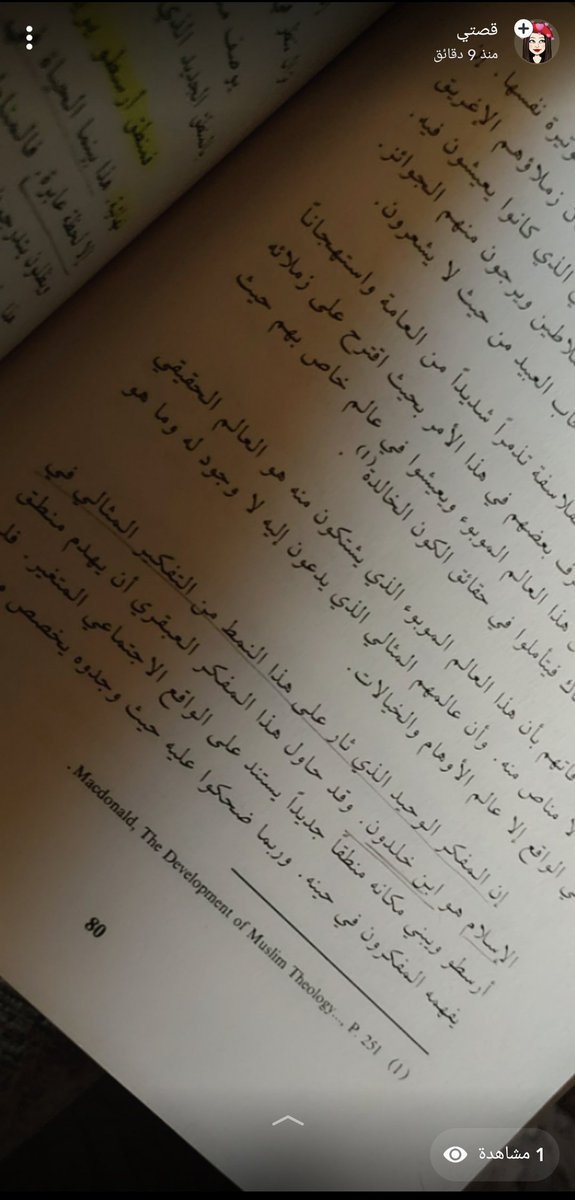 قصتي
منذ 9 دقائق
منطق أرسطو
هذا بينما الحياة
وتيرة نفسها.
زملاؤهم الإغريق
الذي كانوا يعيشون فيه.
ويرجون منهم الجوائز.
العبيد من حيث لا يشعرون.
تذمراً شديداً من العامة واستهجاناً
بعضهم في هذا الأمر بحيث اقترح على زملائه
هذا العالم الموبوء ويعيشوا في عالم خاص بهم حيث
فيتأملوا في حقائق الكون الخالدة(1).
بأن هذا العالم الموبوء الذي يشتكون منه هو العالم الحقيقي
لا مناص منه. وأن عالمهم المثالي الذي يدعون إليه لا وجود له وما هو
في الواقع إلا عالم الأوهام والخيالات.
إن المفكر الوحيد الذي ثار على هذا النمط من التفكير المثالي في
الإسلام هو ابن خلدون. وقد حاول هذا المفكر العبقري أن يهدم منطق
أرسطو ويبني مكانه منطقاً جديداً يستند على الواقع الاجتماعي المتغير. فلم
يفهمه المفكرون في حينه. وربما ضحكوا عليه حيث وجدوه يخصص
(1) Macdonald, The Development of Muslim Theology..., P. 251.
80
1 مشاهدة